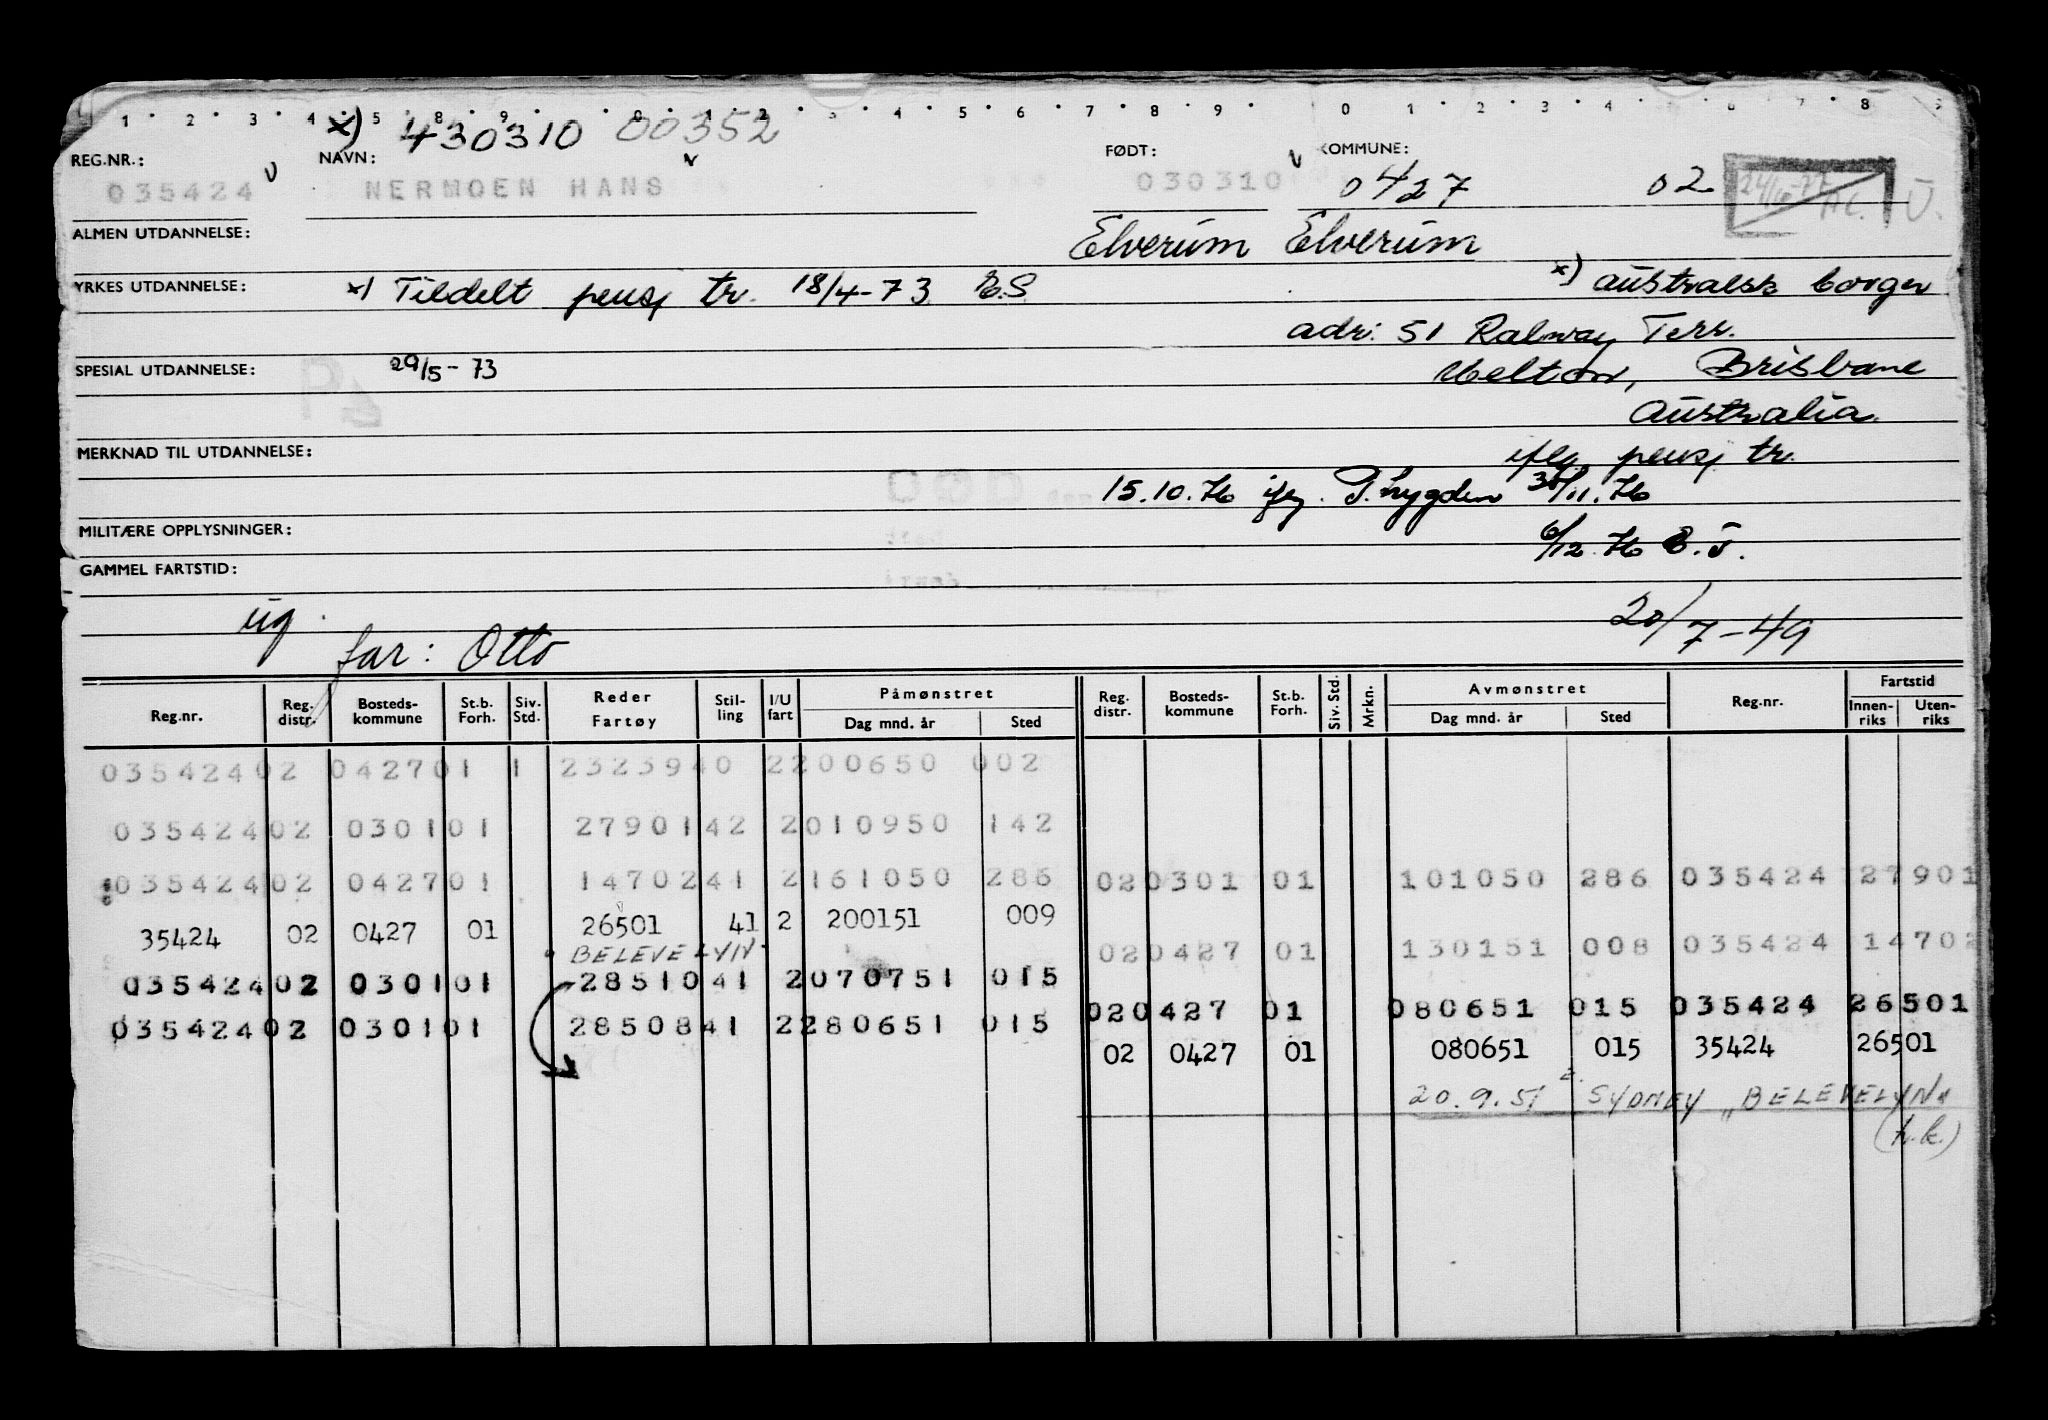 1 2 3 4 5 8 9 0 1 2 3 4 5 6 7 8 9 0 1 2 3 4 5 6 7 8 9
x) 430310 00352
REG.NR.: NAVN: FØDT: KOMMUNE:
035424 v NERMOEN HANS v 030310 v 0427 02
ALMEN UTDANNELSE: Elverum Elverum
YRKES UTDANNELSE: x) Tildelt pensj tr. 18/4-73 E.S x) australsk borger
adr: 51 Ralway Terr.
SPESIAL UTDANNELSE: 29/5-73 Brisbane
Australia.
MERKNAD TIL UTDANNELSE: iflg pensj tr.
15.10.76 iflg. 30/11.76
MILITÆRE OPPLYSNINGER: 6/12.76
GAMMEL FARTSTID:
ug. 20/7-49
far: Otto
Reg.nr. Reg. distr. Bosteds-kommune St.b. Forh. Siv. Std. Reder Fartøy Stil-ling I/U fart Påmønstret Dag mnd. år Sted Reg. distr. Bosteds-kommune St.b. Forh. Siv. Std. Mrkn. Avmønstret Dag mnd. år Sted Reg.nr. Fartstid Innen-riks Uten-riks
035424 02 0427 01 1 23239 40 2 200650 002
035424 02 0301 01 27901 42 2 010950 142
035424 02 0427 01 14702 41 2 161050 286 02 0301 01 101050 286 035424 27901
35424 02 0427 01 26501 41 2 200151 009
BELEVELYN 02 0427 01 130151 008 035424 14702
035424 02 0301 01 28510 41 2 070751 015
02 0427 01 080651 015 035424 26501
035424 02 0301 01 28508 41 2 280651 015
02 0427 01 080651 015 35424 26501
20.9.51 SYDNEY "BELEVELYN"
(h.k.)